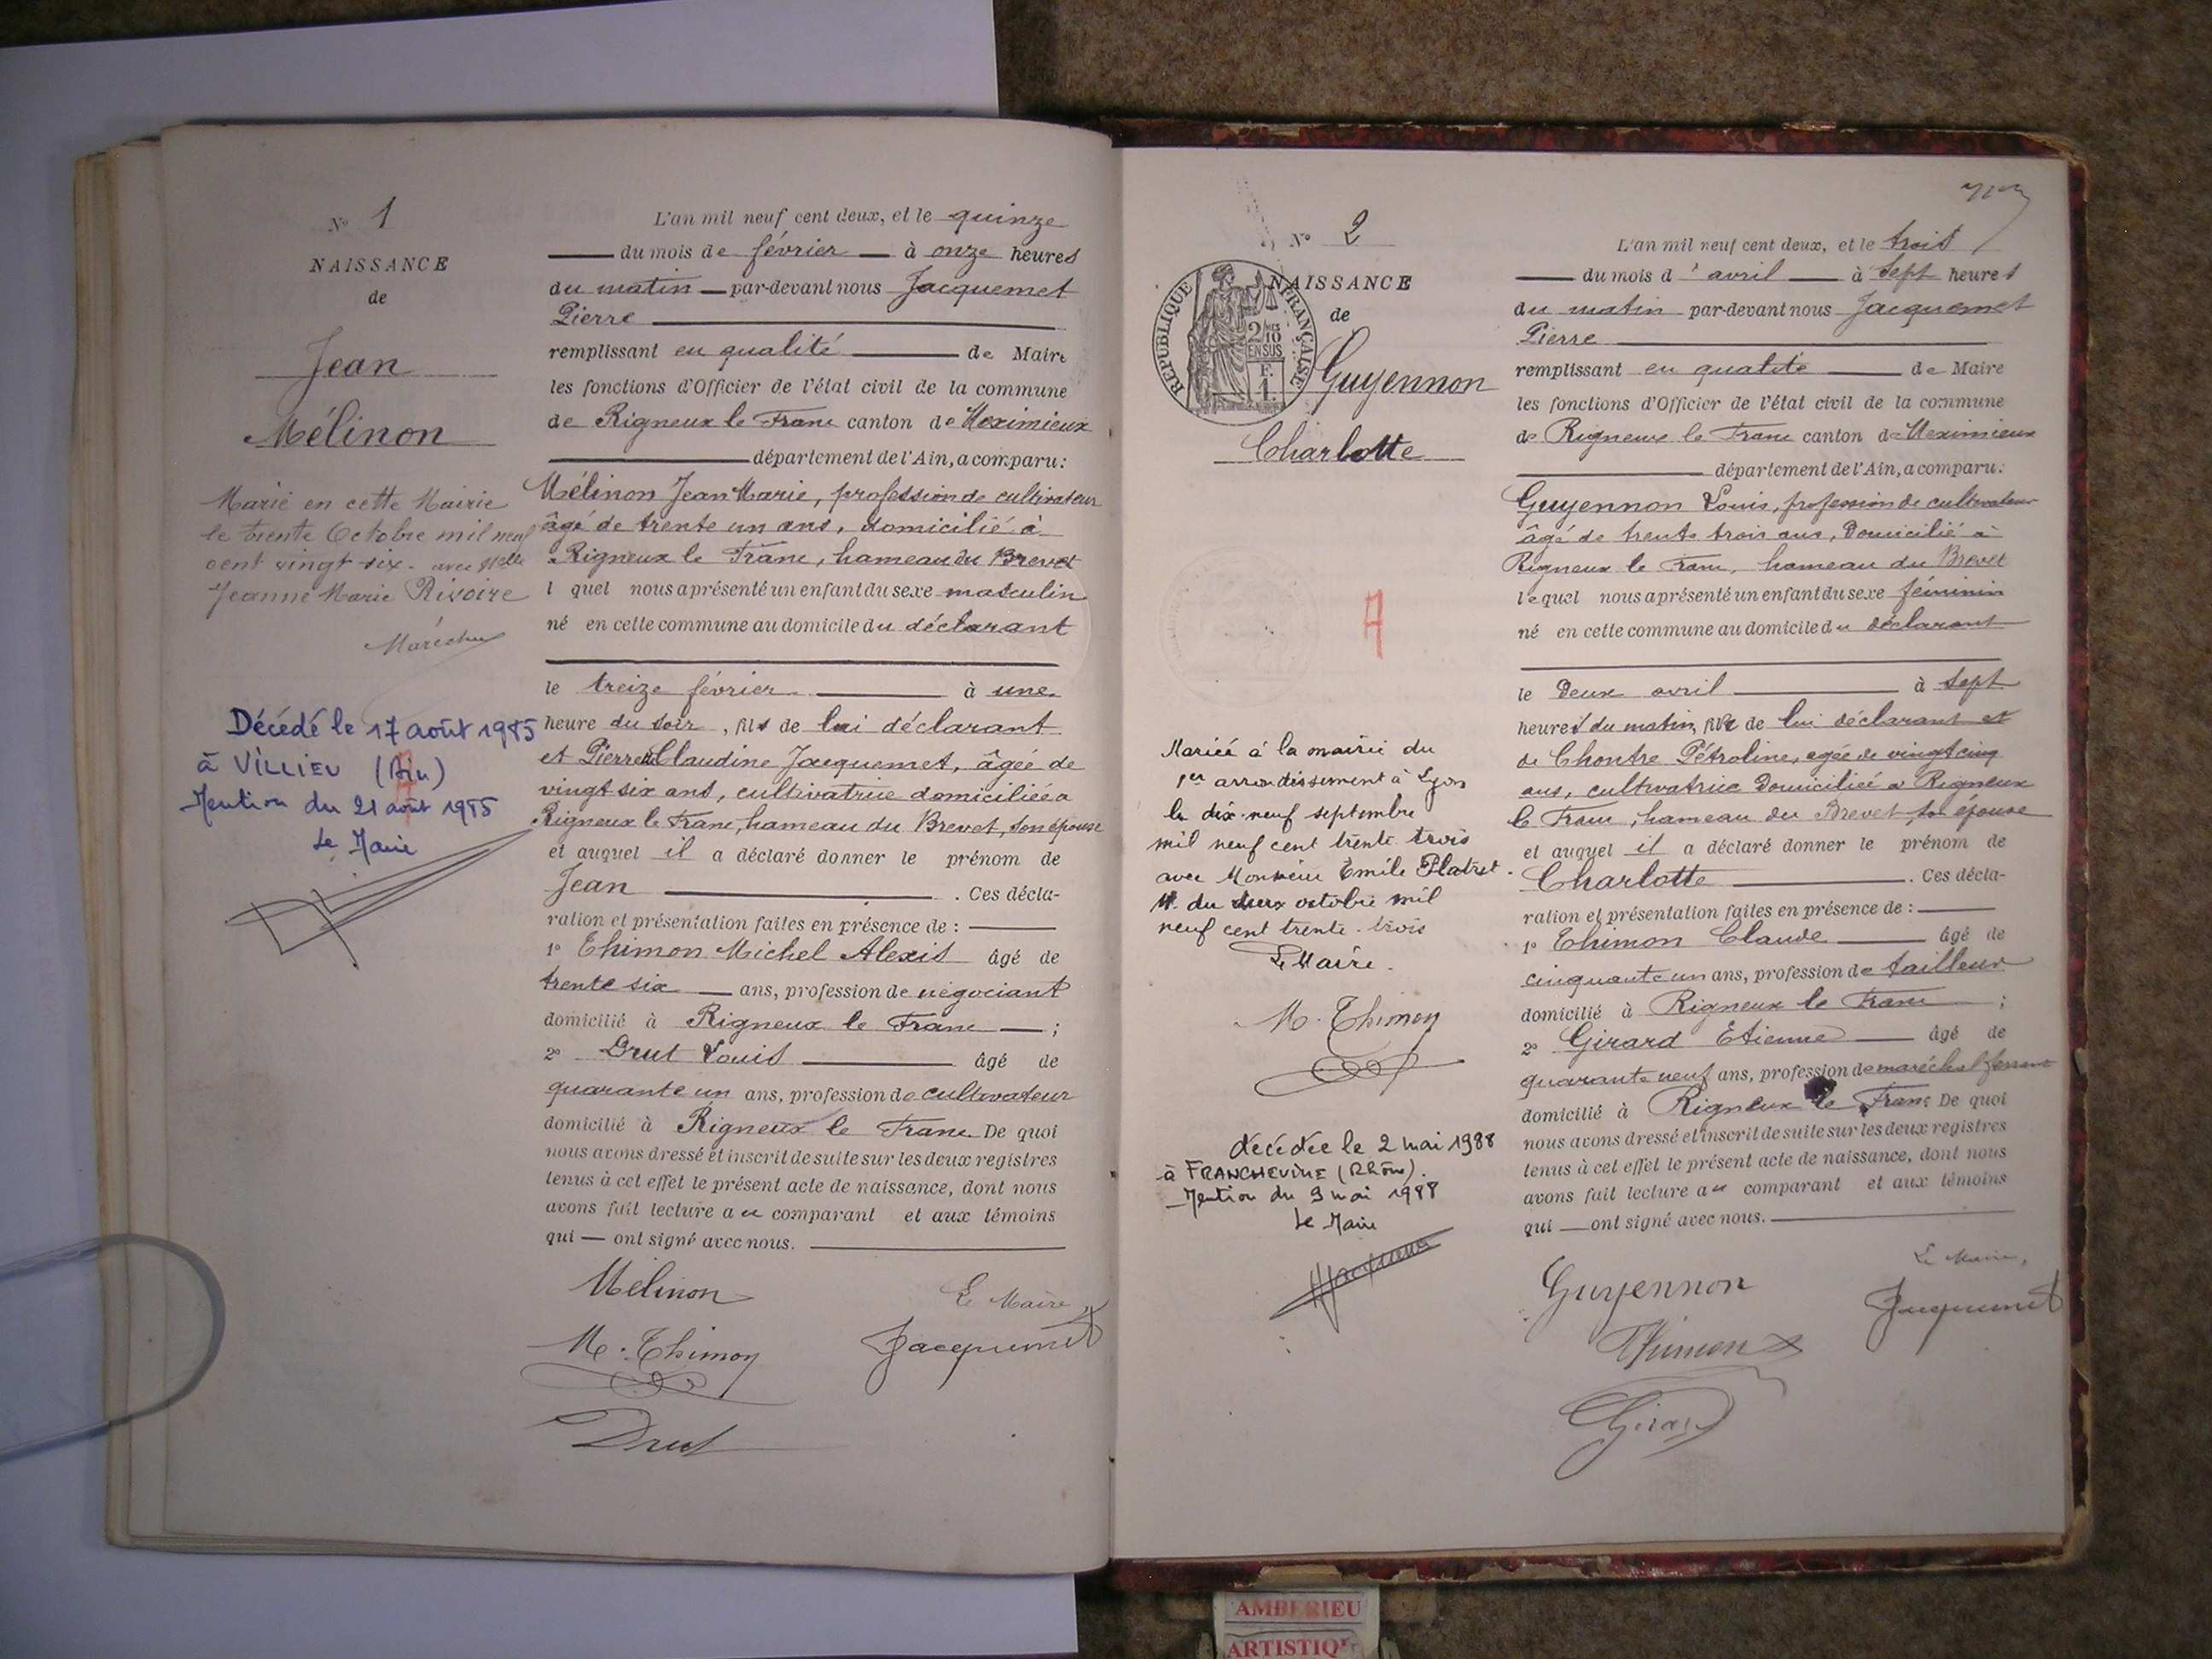 N° 1
NAISSANCE
de
Jean
Mélinon
Marié en cette Mairie
le trente Octobre mil neuf
cent vingt six - avec Melle
Jeanne Marie Rivoire
Décédé le 17 août 1985
à VILLIEU (Ain)
Mention du 21 août 1985
Le Maire
L'an mil neuf cent deux, et le quinze
du mois de février à onze heures
du matin par-devant nous Jacquemet
Pierre
remplissant en qualité de Maire
les fonctions d'Officier de l'état civil de la commune
de Rigneux le Franc canton de Meximieux
département de l'Ain, a comparu:
Mélinon Jean Marie, profession de cultivateur
âgé de trente un ans, domicilié à
Rigneux le Franc, hameau du Brevet
l quel nous a présenté un enfant du sexe masculin
né en cette commune au domicile du déclarant
le treize février à une
heure du soir, fils de lui déclarant
et Pierrette Claudine Jacquemet, âgée de
vingt six ans, cultivatrice domiciliée a
Rigneux le Franc, hameau du Brevet, son épouse
et auquel il a déclaré donner le prénom de
Jean . Ces décla-
ration et présentation faites en présence de :
1° Thimon Michel Alexis âgé de
trente six ans, profession de négociant
domicilié à Rigneux le Franc ;
2° Drut Louis âgé de
quarante un ans, profession de cultivateur
domicilié à Rigneux le Franc De quoi
nous avons dressé et inscrit de suite sur les deux registres
tenus à cet effet le présent acte de naissance, dont nous
avons fait lecture au comparant et aux témoins
qui — ont signé avec nous.
Mélinon
Le Maire
M. Thimon
Jacquemet
Drut
N° 2
NAISSANCE
de
REPUBLIQUE FRANÇAISE
2/10 EN SUS
F. 1.
Guyennon
Charlotte
A
Mariée à la mairie du
1er arrondissement à Lyon
le dix-neuf septembre
mil neuf cent trente trois
avec Monsieur Emile Platret.
M. du deux octobre mil
neuf cent trente-trois
Le Maire.
M. Thimon
décédée le 2 mai 1988
à FRANCHEVILLE (Rhône).
Mention du 9 mai 1988
Le Maire
L'an mil neuf cent deux, et le trois
du mois d'avril à sept heures
du matin par-devant nous Jacquemet
Pierre
remplissant en qualité de Maire
les fonctions d'Officier de l'état civil de la commune
de Rigneux le Franc canton de Meximieux
département de l'Ain, a comparu:
Guyennon Louis, profession de cultivateur
âgé de trente trois ans, Domicilié à
Rigneux le Franc, hameau du Brevet
lequel nous a présenté un enfant du sexe féminin
né en cette commune au domicile du déclarant
le Deux avril à sept
heures du matin, fille de lui déclarant et
de Chontre Pétroline, agée de vingt cinq
ans, cultivatrice Domiciliée a Rigneux
le Franc, hameau du Brevet son épouse
et auquel il a déclaré donner le prénom de
Charlotte . Ces décla-
ration et présentation faites en présence de :
1° Thimon Claude âgé de
cinquante un ans, profession de tailleur
domicilié à Rigneux le Franc ;
2° Girard Etienne âgé de
quarante neuf ans, profession de maréchal ferrant
domicilié à Rigneux le Franc De quoi
nous avons dressé et inscrit de suite sur les deux registres
tenus à cet effet le présent acte de naissance, dont nous
avons fait lecture au comparant et aux témoins
qui — ont signé avec nous.
Le Maire,
Guyennon
Jacquemet
Thimon
Girard
AMBERIEU
ARTISTIQU